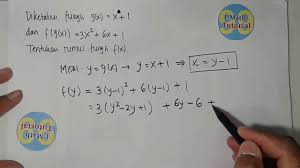 Diketahui fungsi g(x) = x + 1
dan f(g(x)) = 3x² + 6x + 1
Tentukan rumus fungsi f(x)
Misal → y = g(x) → y = x + 1 → x = y - 1
f(y) = 3(y-1)² + 6(y-1) + 1
= 3(y² - 2y + 1) + 6y - 6 +
Math
Tutorial
Math
Tutorial